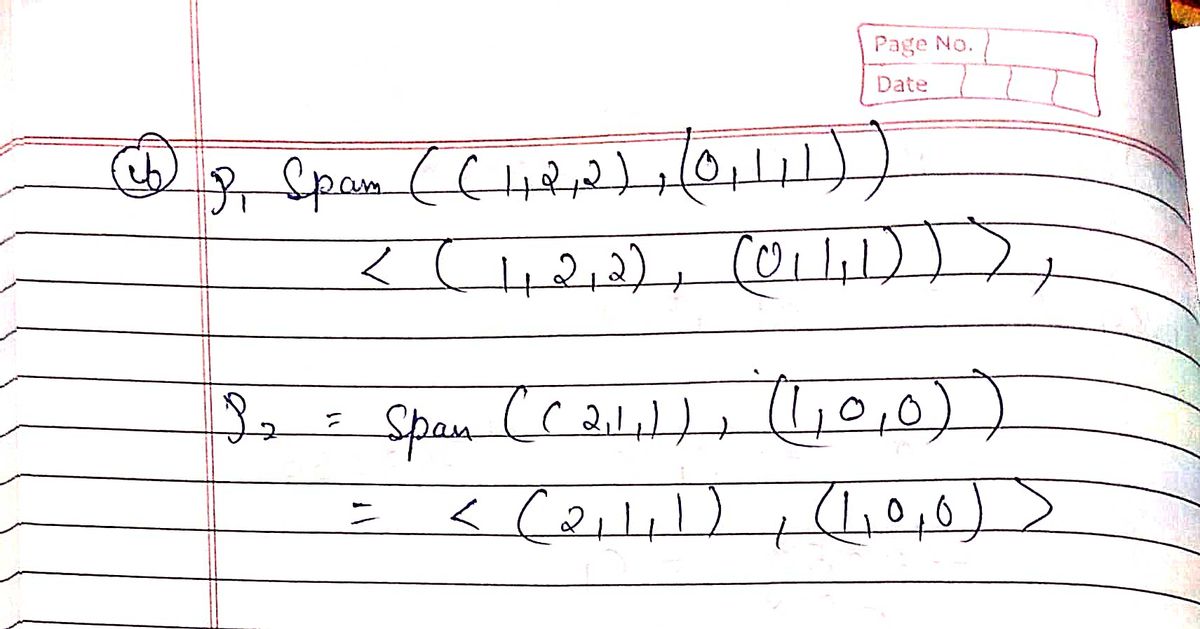 Page No.
Date
(16) P₁ Spam ((1,2,2),(0,1,1))
< (1,2,2), (0,1,1)) >,
P₂ = Span ((2,1,1), (1,0,0))
= < (2,1,1), (1,0,0) >